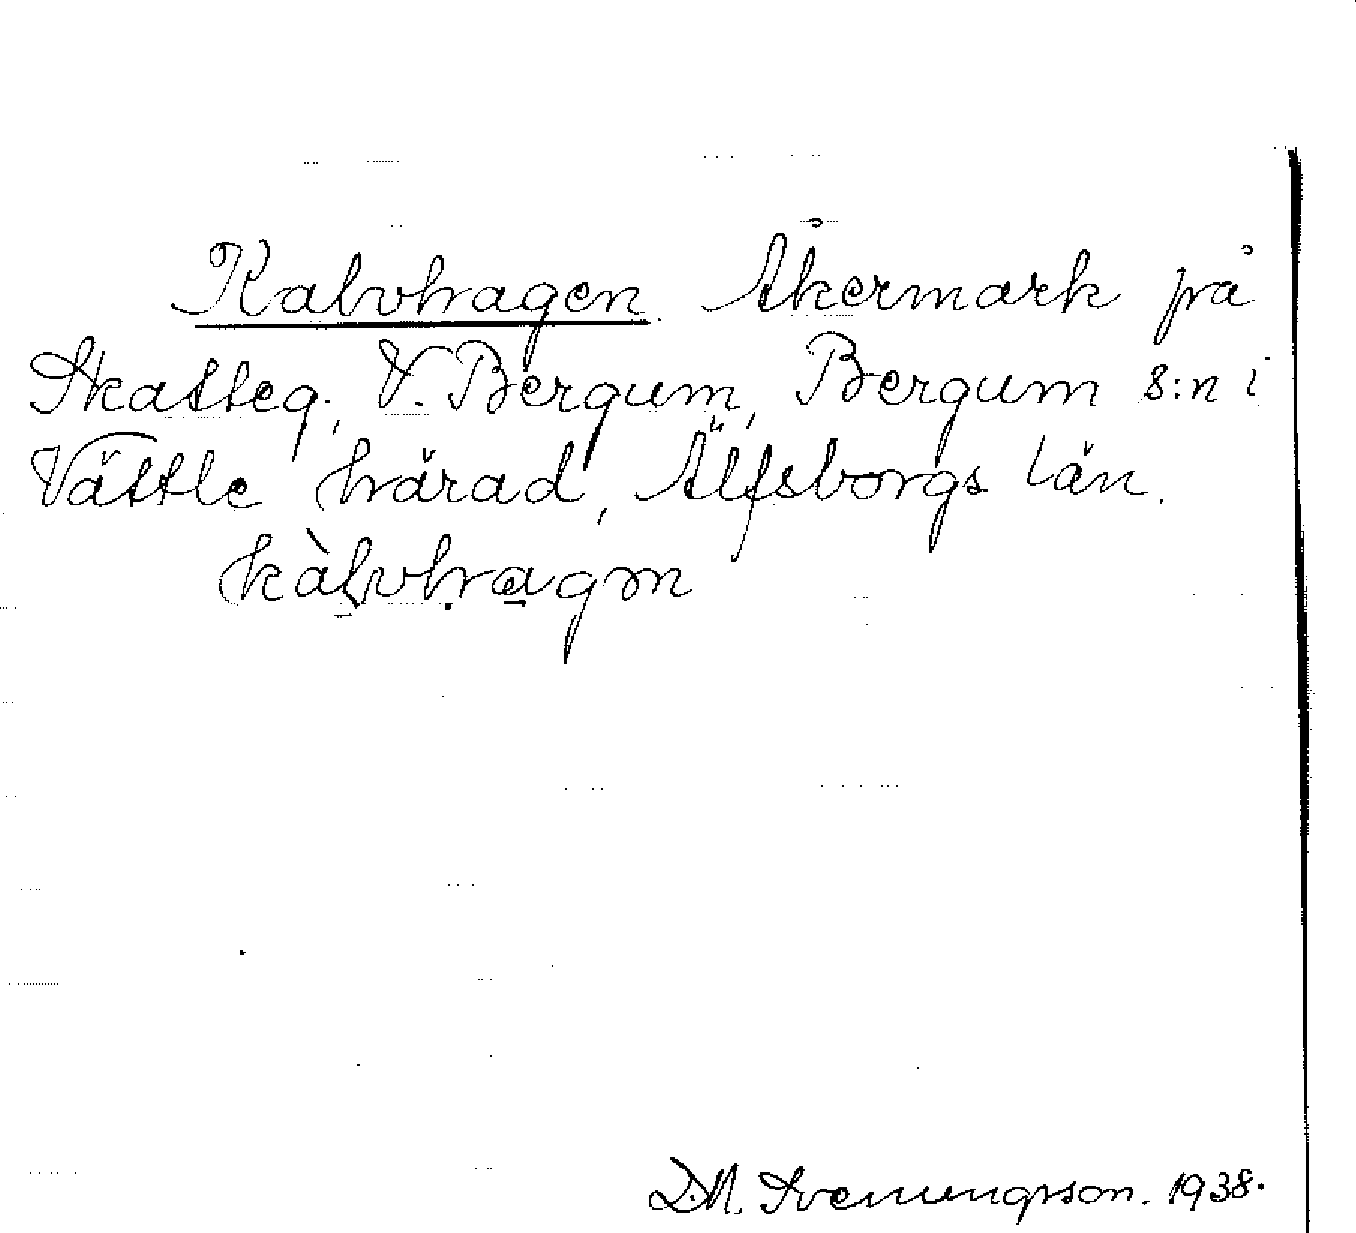 Kalvhagen. Åkermark på
Skatteg., V. Bergum, Bergum s:n i
Vättle härad, Älfsborgs län.
kàlvhagən
D.M. Svenungsson. 1938.